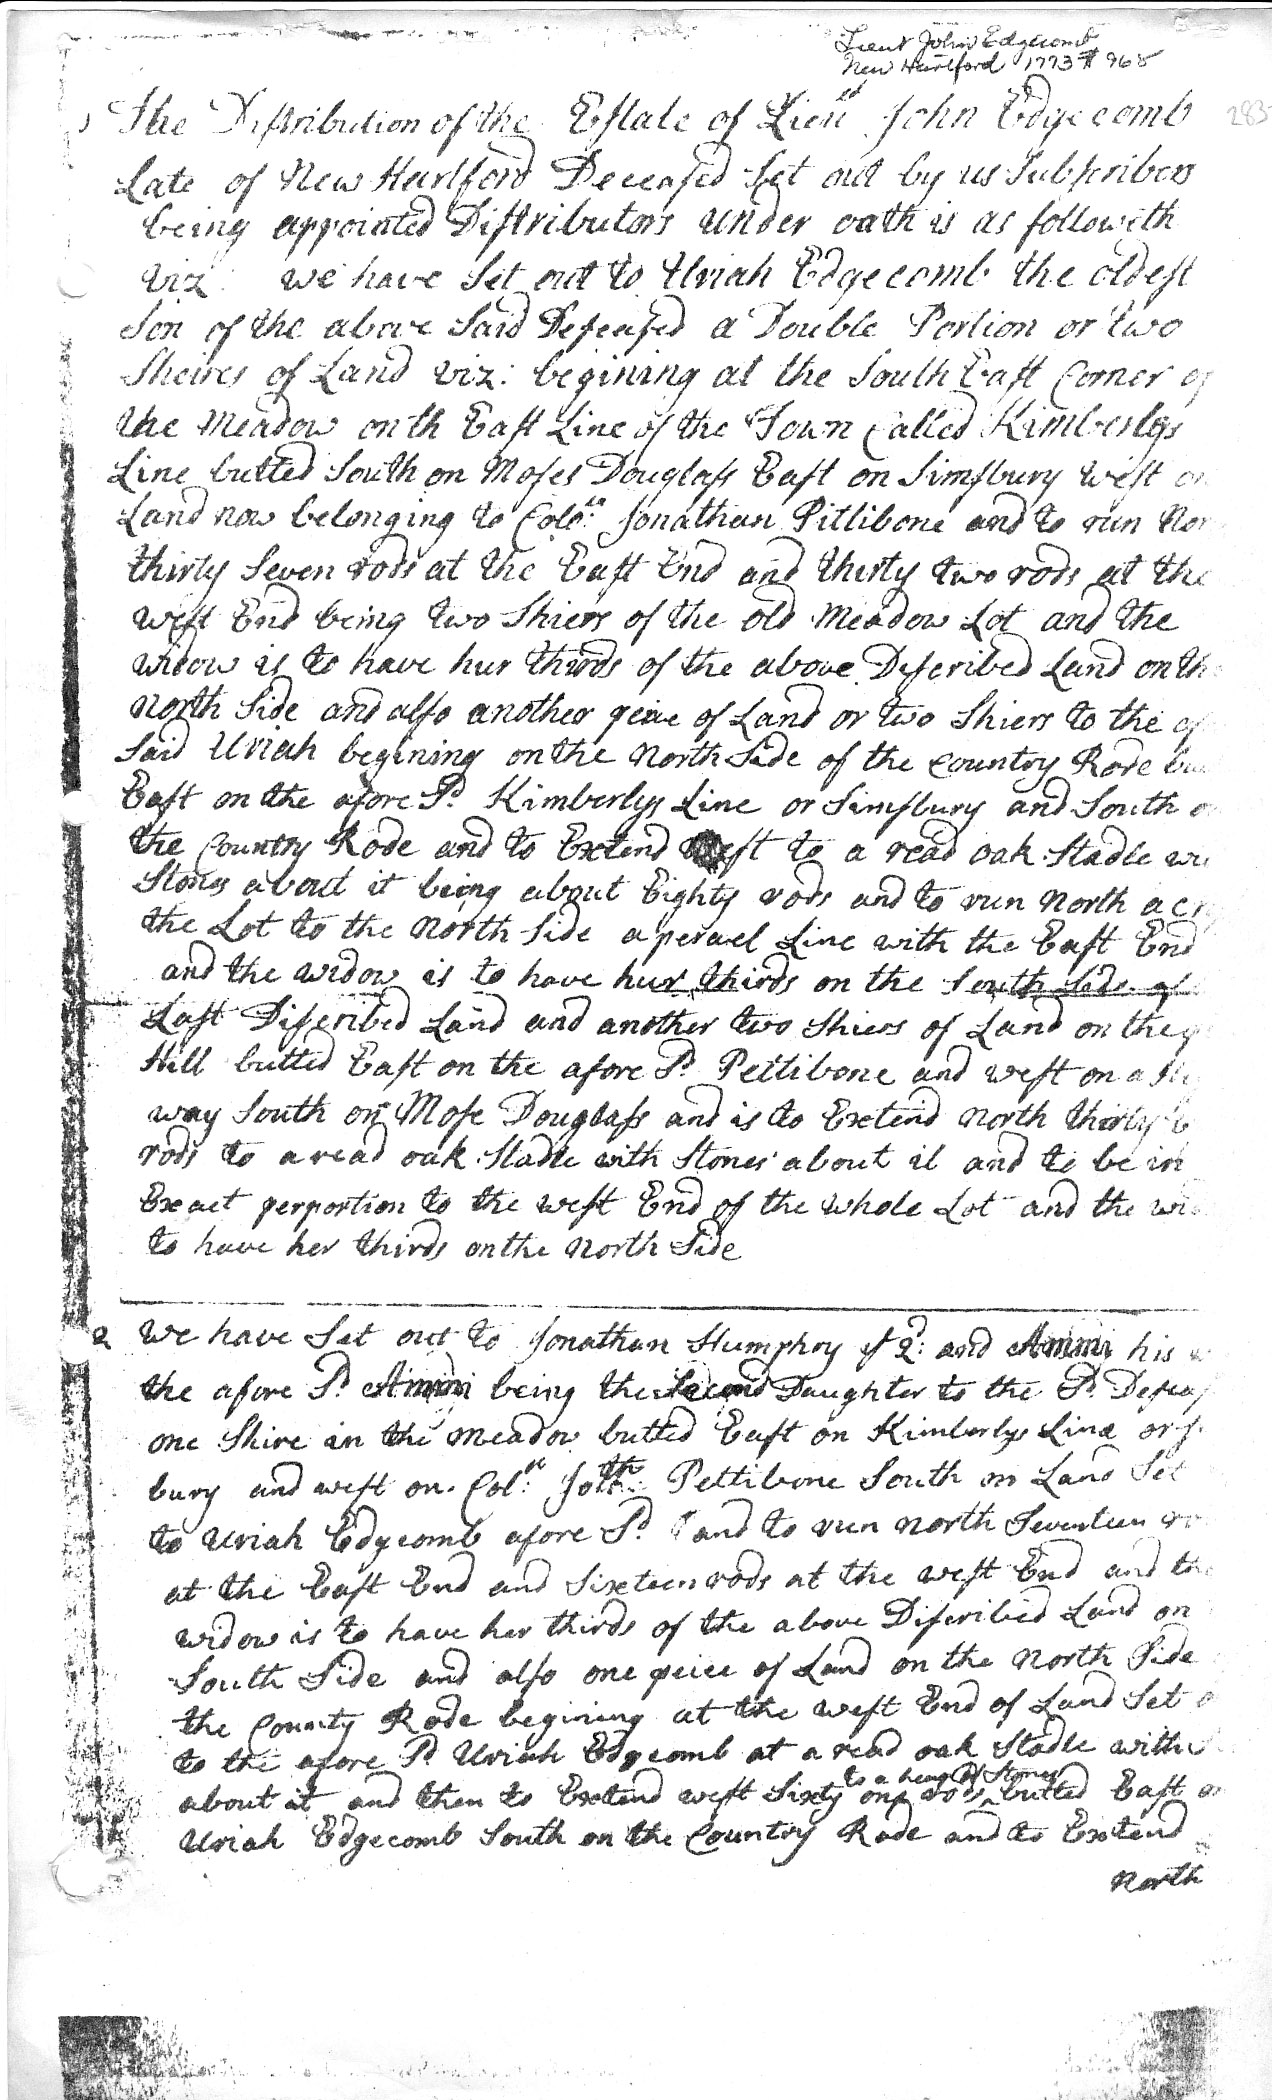 Lieut John Edgecomb
New Hartford 1773 # 968
283
The Distribution of the Estate of Lieut John Edgecomb
Late of New Hartford Deceased Set out by us Subscribers
being appointed Distributors under oath is as followith
viz: we have Set out to Uriah Edgecomb the oldest
Son of the above Said Deseased a Double Portion or two
Sheires of Land viz: begining at the South East Corner of
the Meadow on th East Line of the Town Called Kimberlys
Line butted South on Moses Douglass East on Simsbury west on
Land now belonging to Colo: Jonathan Pittibone and to run
thirty Seven rods at the East End and thirty two rods at the
west End being two Shiers of the old Meadow Lot and the
widow is to have hur thirds of the above Discribed Land on the
north Side and also another peice of Land or two Shiers to the
Said Uriah begining on the north Side of the Country Rode
East on the afore Sd Kimberlys Line or Simsbury and South
the Country Rode and to Extend West to a read oak Stadle
Stones about it being about Eighty rods and to run north
the Lot to the north Side a perael Line with the East End
and the widow is to have hur thirds on the South Side
Last Discribed Land and another two Shiers of Land on the
Hill butted East on the afore Sd Pettibone and west on a
way South on Mose Douglass and is to Extend north thirty
rods to a read oak Stadle with Stones about it and to be in
Exact perportion to the west End of the whole Lot and the
to have her thirds on the north Side
2 We have Set out to Jonathan Humphry ye 2d: and Ammi his
the afore Sd Ammi being the Second Daughter to the Sd
one Shire in the meadow butted East on Kimberlys Line or
bury and west on Col: Joth: Pettibone South on Land Set
to Uriah Edgcomb afore Sd and to run north Seventeen
at the East End and Sixteen rods at the west End and the
widow is to have her thirds of the above Discribed Land on
South Side and also one peice of Land on the north Side
the County Rode begining at the west End of Land Set
to the afore Sd Uriah Edgecomb at a read oak Stadle with
about it and then to Extend west Sixty one rods to a heap of Stones butted East on
Uriah Edgecomb South on the Country Rode and to Extend
north